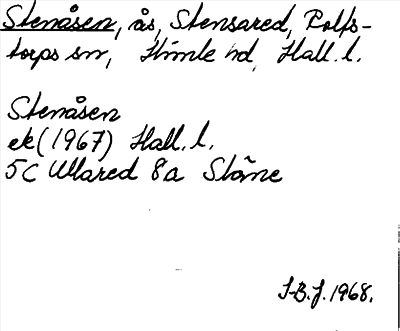 Stenåsen, ås, Stensared, Rolfs-
torps sn, Himle hd, Hall. l.
Stenåsen
ek (1967) Hall. l.
5C Ullared 8a Ståne
S-B.J. 1968.